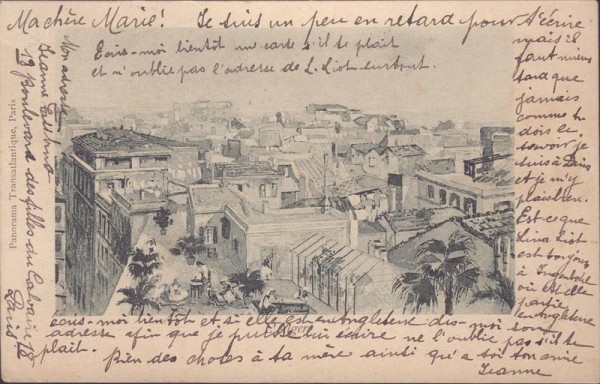 Ma chère Marie! Je suis un peu en retard pour t'écrire
mais il
faut mieux
tard que
jamais
comme tu
dois le
savoir je
suis à Paris
et je m'y
plais bien.
Est-ce que
Lina Liot
est toujours
à
où est elle
partie
en Angleterre
écris-moi bientôt et si elle est en Angleterre dis-moi son
adresse afin que je puisse lui écrire ne l'oublie pas s'il te
plait.
Bien des choses à ta mère ainsi qu'à toi ton amie
Jeanne
Ecris-moi bientôt une carte s'il te plait
et n'oublie pas l'adresse de L. Liot surtout.
Mon adresse
Jeanne
18 Boulevard des filles du Calvaire 18
Paris
Panorama Transatlantique, Paris
Alger